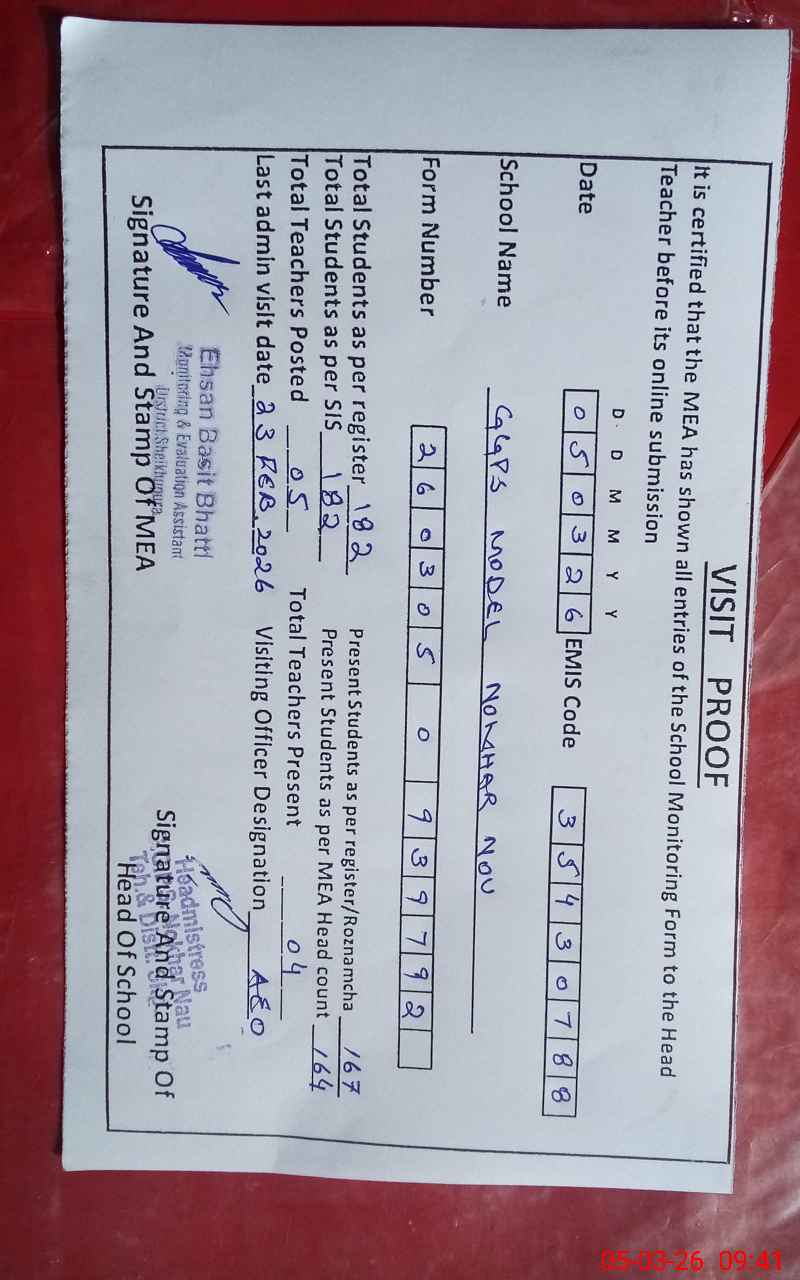 VISIT PROOF
It is certified that the MEA has shown all entries of the School Monitoring Form to the Head
Teacher before its online submission
D. D M M Y Y
Date 050326 EMIS Code 35430788
School Name GGPS MODEL NOKHAR NOU
Form Number 2603050939792
Total Students as per register 182 Present Students as per register/Roznamcha 167
Total Students as per SIS 182 Present Students as per MEA Head count 164
Total Teachers Posted 05 Total Teachers Present 04
Last admin visit date 23 FEB, 2026 Visiting Officer Designation AEO
Ehsan Basit Bhatti
Monitoring & Evaluation Assistant
District Sheikhupura
Signature And Stamp Of MEA
Headmistress
Nokhar Nau
Teh & Distt.
Signature And Stamp Of
Head Of School
05-03-26 09:41